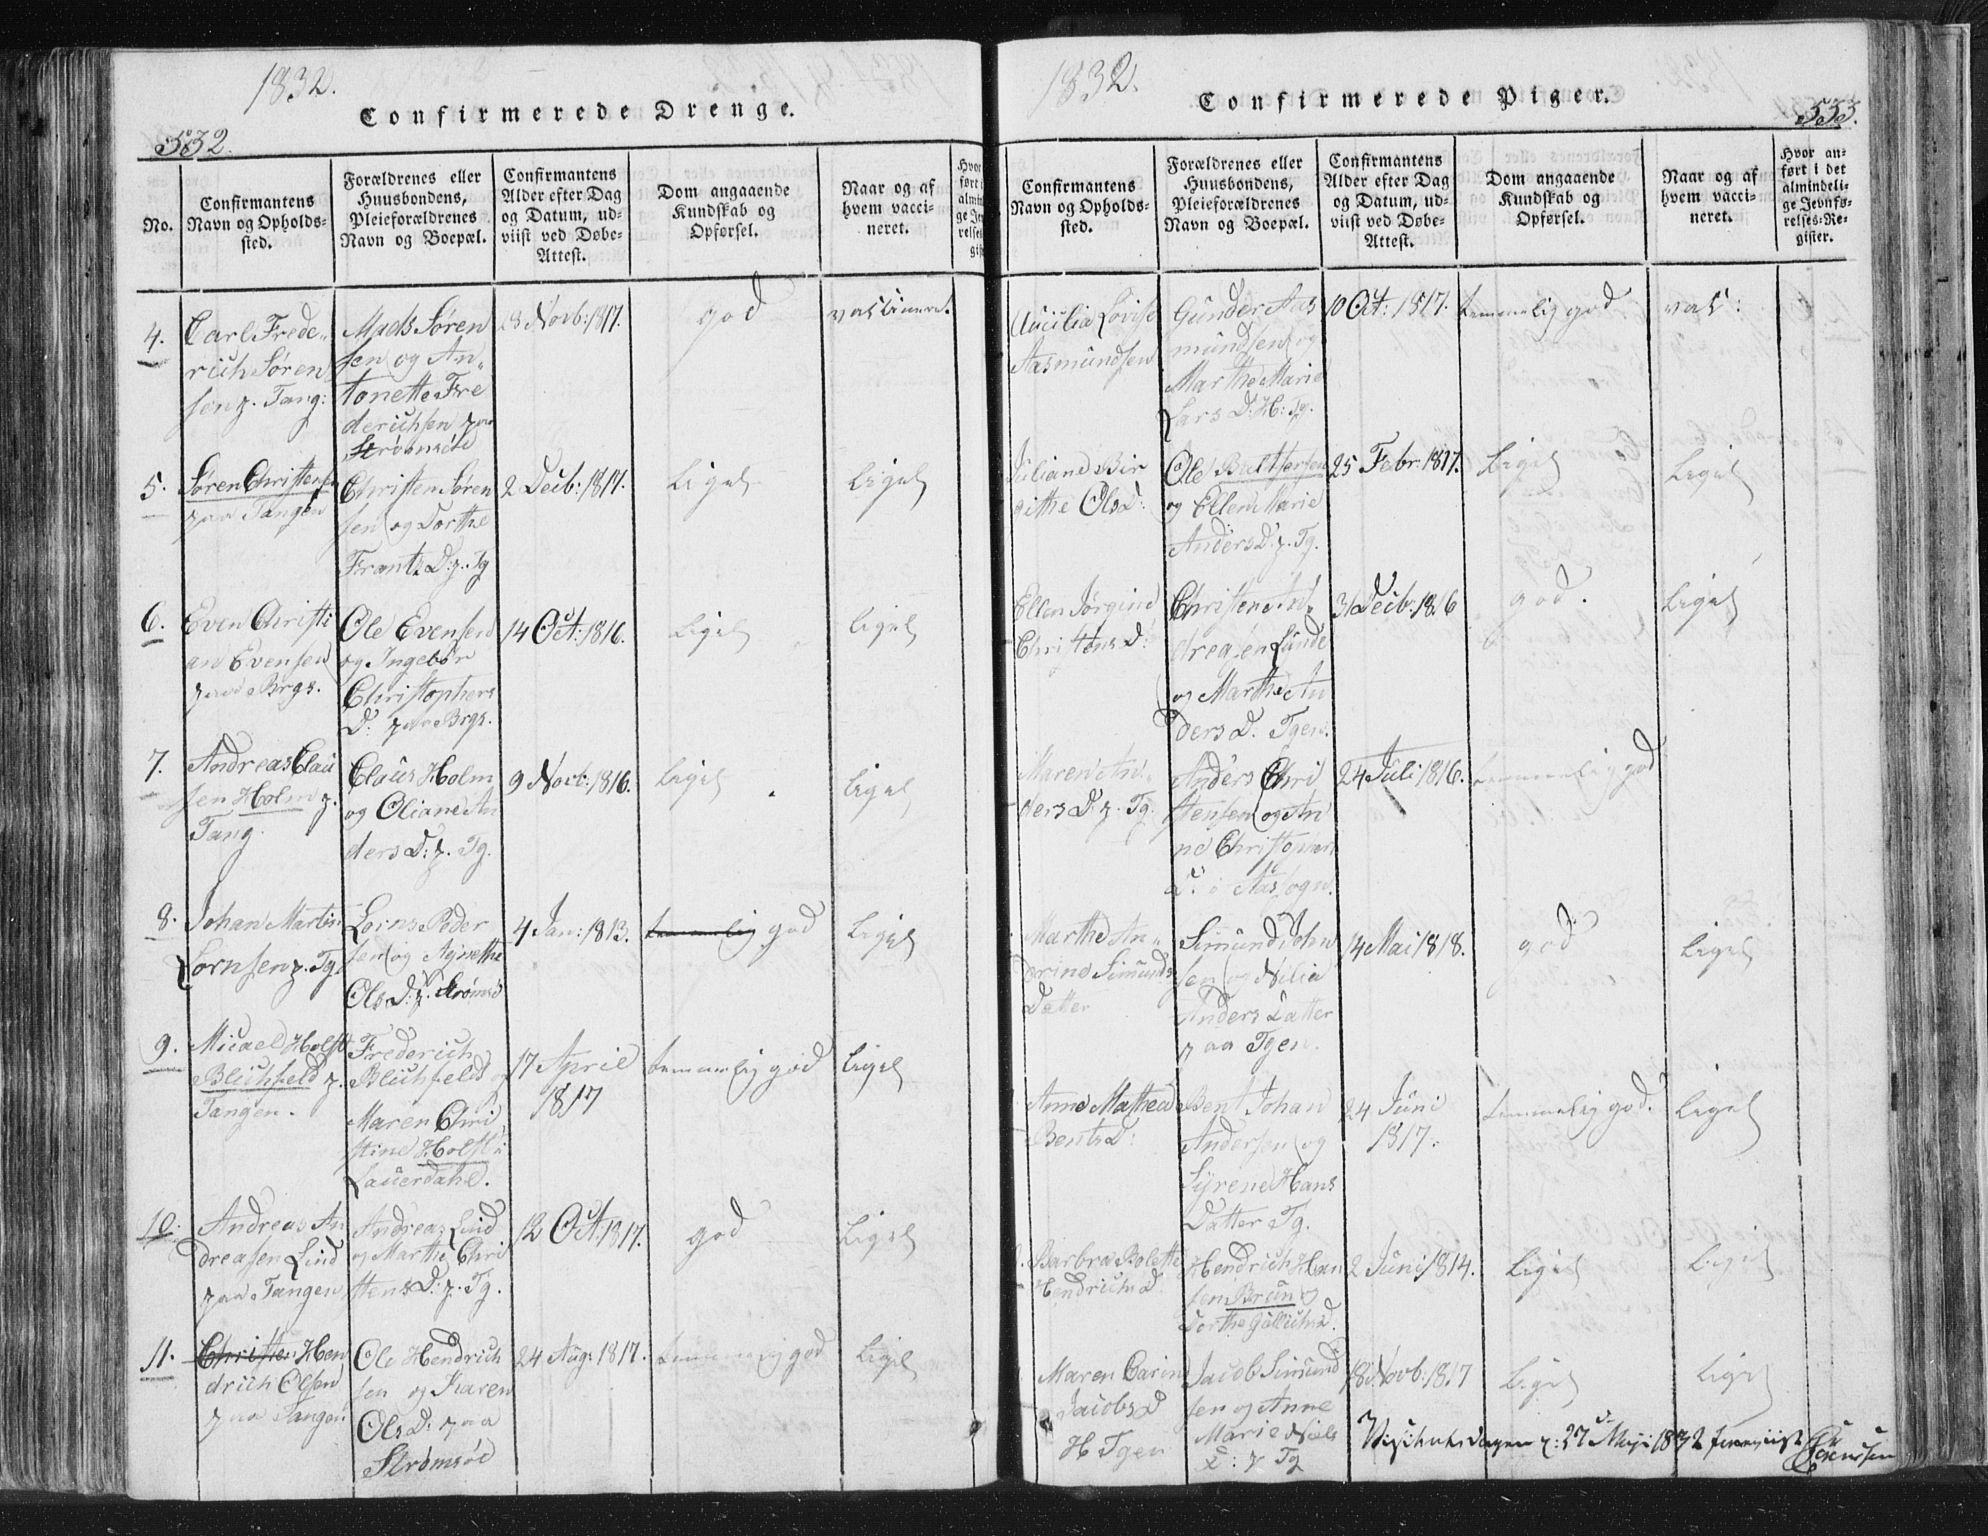 1832.
Confirmerede Drenge.
532.
No.
Confirmantens
Navn og Opholds-
sted.
Forældrenes eller
Huusbondens,
Pleieforældrenes
Navn og Boepæl.
Confirmantens
Alder efter Dag
og Datum, ud-
viist ved Døbe-
Attest.
Dom angaaende
Kundskab og
Opførsel.
Naar og af
hvem vacci-
neret.
4.
Carl Frede„
rich Søren
sen p. Tang:
Mads Søren
sen og An„
tonette Fre
derichsen paa
Strømsøe
28 Novb: 1817.
god
vaccineret.
5.
Søren Christensen
paa Tangen
Christen Søren
sen og Dorthe
Frants D: p. Tg
2 Decb: 1817.
Ligel
Ligel
6.
Even Christi
an Evensen
paa Brgs.
Ole Evensen
og Ingebor
Christophers
D: paa Brgs.
14 Oct: 1816.
Ligel
Ligel
7.
Andreas Clau
sen Holm p.
Tang.
Claus Holm
og Oliane An
ders D: p. Tg.
9 Novb: 1816.
Ligel
Ligel
8.
Johan Martin
Lornsen p. Tg
Lorns Peder
sen og Agnethe
Ols D: p. Strømsø
4 Jan: 1813.
temmelig god
Ligel
9.
Micael Holst
Blichfeld p.
Tangen.
Frederich
Blichfeld og
Maren Chri
stine Holst i
Lauerdahl.
17 April
1817
temmelig god
Ligel
10.
Andreas An
dreasen Lind
paa Tangen
Andreas Lind
og Marthe Chri
stens D: p. Tg.
12 Oct: 1817.
god
Ligel
11.
Christen Hen
drich Olsen
paa Tangen
Ole Hendrich
sen og Karen
Ols D: paa
Strømsøe
24 Aug: 1817.
temmelig god
Ligel
1832.
Confirmerede Piger.
533.
Confirmantens
Navn og Opholds-
sted.
Forældrenes eller
Huusbondens,
Pleieforældrenes
Navn og Boepæl.
Confirmantens
Alder efter Dag
og Datum, ud-
viist ved Døbe-
Attest.
Dom angaaende
Kundskab og
Opførsel.
Naar og af
hvem vacci-
neret.
Hvor an-
ført i det
almindeli-
ge Jevnfø-
relses-Re-
gister.
Lovise
Aasmundsen
Gunder Aas
mundsen og
Marthe Marie
Lars D: H: Tg.
10 Oct: 1817.
temmelig god
vac:
Juliane Bir
githe Ols D:
Ole Baltsersen
og Ellen Marie
Anders D: p. Tg.
25 Febr: 1817.
Ligel
Ligel
Ellen Jørgine
Christens D:
Christen An
dreasen Lunde
og Marthe An
ders D. Tgen.
31 Decb: 1816
god.
Ligel
Maren An„
ders D: p. Tg.
Anders Chri
stensen og An
ne Christophers
D: i Aas sogn.
24 Juli 1816.
temmelig god
Marthe An„
drine Simunds
Datter
Simund John
sen og Nilia
Anders Datter
paa Tgen.
14 Mai 1818.
god
Ligel
Anne Mathea
Bents D:
Bent Johan
Andersen og
Syrene Hans
Datter Tg.
24 Juni
1817.
temmelig god.
Ligel
Barbra Bolette
Hendrichs D.
Hendrich Han
sen Bruun og
Dorthe Gullichs D.
2 Juni 1814.
Ligel
Ligel
Maren Carine
Jacobs D
H Tgen
Jacob Simund
sen og Anne
Marie Niels
D: p Tg
18 Novb: 1817
Ligel
Ligel
27 Maji 1832